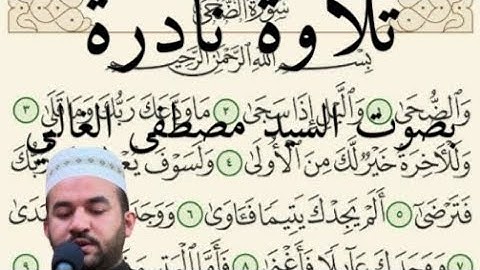 سُورَةُ الضُّحَىٰ
تلاوة نادرة
بِسْمِ اللَّهِ الرَّحْمَٰنِ الرَّحِيمِ
وَالضُّحَىٰ ١ وَالَّيْلِ إِذَا سَجَىٰ ٢ مَا وَدَّعَكَ رَبُّكَ وَمَا قَلَىٰ ٣
بصوت السيد مصطفى الغالبي
وَلَلْآخِرَةُ خَيْرٌ لَّكَ مِنَ الْأُولَىٰ ٤ وَلَسَوْفَ
فَتَرْضَىٰ ٥ أَلَمْ يَجِدْكَ يَتِيمًا فَآوَىٰ ٦
٧ وَوَجَدَكَ عَآئِلًا فَأَغْنَىٰ ٨ فَأَمَّا الْيَتِيمَ ٩